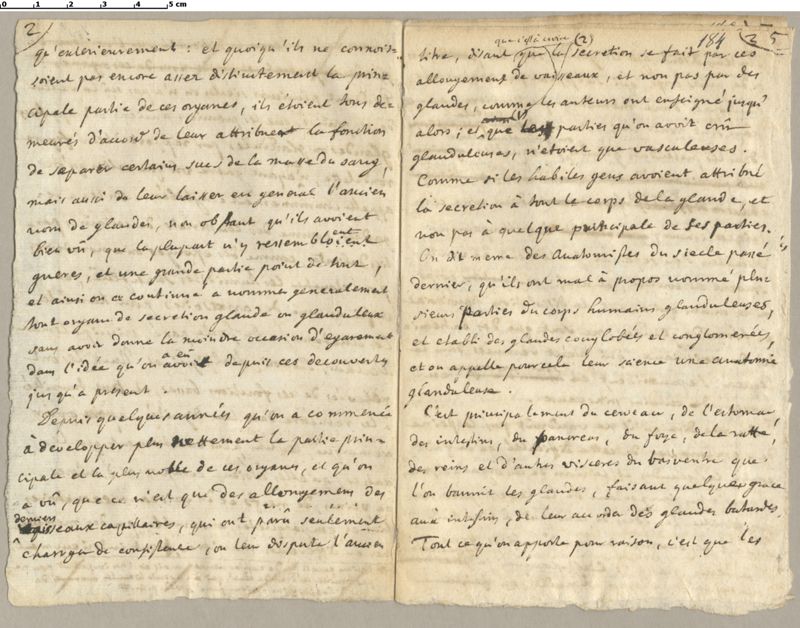 0 1 2 3 4 5 cm
2
qu'exterieurement: et quoiqu'ils ne connois-
soient pas encore asser distinctement la prin-
cipale partie de ces organes, ils étoient tous de-
meurés d'accord de leur attribuer la fonction
de separer certains sucs de la masse du sang,
mais aussi de leur laisser en general l'ancien
nom de glandes, non obstant qu'ils avoient
bien vû, que la plupart n'y ressembloient
gueres, et une grande partie point du tout,
et ainsi on a continué a nommer generalement
tout organe de secretion glande ou glanduleux
sans avoir donné la moindre occasion d'egarement
dans l'idée qu'on en avoit depuis ces decouvertes
jusqu'a présent.
Depuis quelques années qu'on a commencé
à developper plus nettement la partie prin-
cipale et la plus noble de ces organes, et qu'on
a vû, que ce n'est que des allongemens des
derniers
vaisseaux capillaires, qui ont parû seulement
changer de consistence, on leur dispute l'ancien
184
25
titre, disant que la secretion se fait par ces
allongemens de vaisseaux, et non pas par des
glandes, comme les auteurs ont enseigné jusqu'
alors; et que les parties qu'on avoit crû
glanduleuses, n'etoient que vasculeuses.
Comme si les habiles gens avoient attribué
la secretion à tout le corps de la glande, et
non pas à quelque participale de ses parties.
On dit meme des Anatomistes du siecle passé
dernier, qu'ils ont mal à propos nommé plu-
sieurs parties du corps humains glanduleuses,
et etabli des glandes conglobées et conglomerées,
et on appelle pour cela leur science une anatomie
glanduleuse.
C'est principalement du cerveau, de l'estomac,
des intestins, du pancreas, du foye, de la ratte,
des reins et d'autres visceres du basventre que
l'on bannit les glandes, faisant quelque grace
aux intestins, de leur accorder des glandes batardes.
Tout ce qu'on apporte pour raison, c'est que les